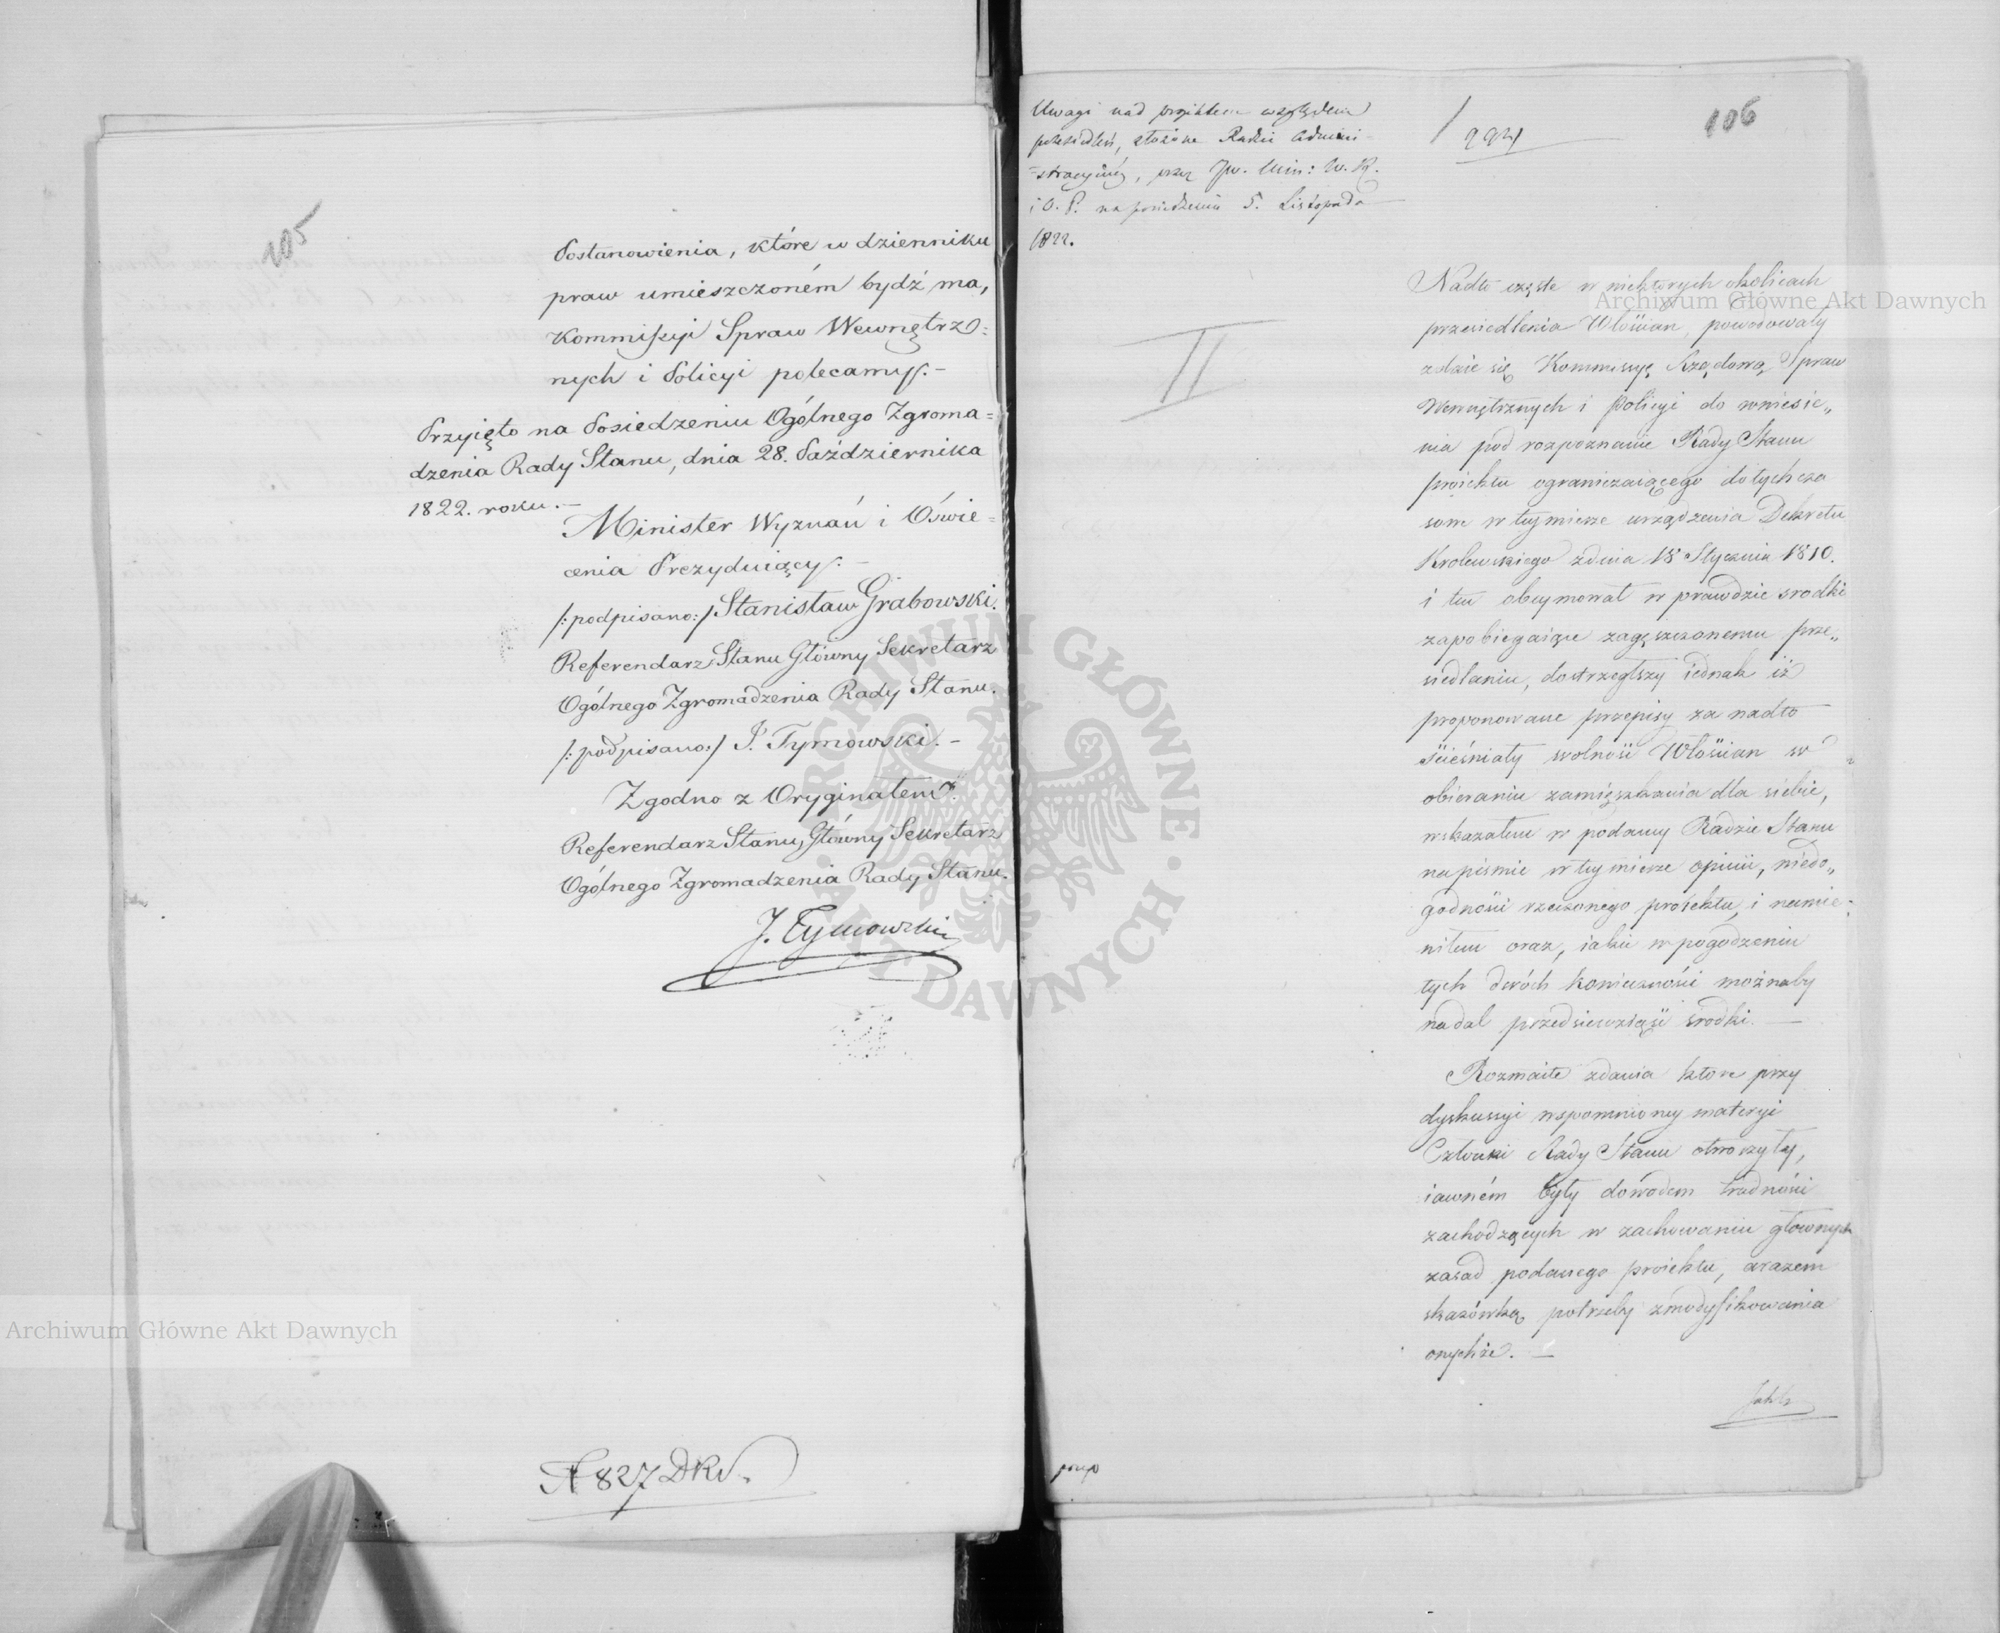 105
Postanowienia, które w dzienniku
praw umieszczoném bydź ma,
Kommissyi Spraw Wewnętrz=
nych i Policyi polecamy.-
Przyięto na Posiedzeniu Ogólnego Zgroma=
dzenia Rady Stanu, dnia 28. Października
1822. roku.-
Minister Wyznań i Oświe=
cenia Prezyduiący.-
/:podpisano:/ Stanisław Grabowski.
Referendarz Stanu Główny Sekretarz
Ogólnego Zgromadzenia Rady Stanu.
/:podpisano:/ J. Tymowski.-
Zgodno z Oryginałem
Referendarz Stanu, Główny Sekretarz
Ogólnego Zgromadzenia Rady Stanu.
J. Tymowski
N 827 DKP.
Archiwum Główne Akt Dawnych
106
Uwagi nad projektem względem
przesiedleń, złożone Radzie Admini-
-stracyinéy, przez Jw. Min: W. R.
i O. P. na posiedzeniu 5. Listopada
1822.
II
Nadto częste w niektórych okolicach
Archiwum Główne Akt Dawnych
przesiedlenia Włościan, powodowały
zdaie się Kommissyę Rządową Spraw
Wewnętrznych i Policyi do wniesie„
nia pod rozpoznanie Rady Stanu
proiektu ograniczaiącego dotychcza
sowe w tey mierze urządzenia Dekretu
Krolewskiego z dnia 18 Stycznia 1810.
i ten obeymował w prawdzie srodki
zapobiegaiące zagęszczonemu prze„
siedlaniu, dostrzegłszy iednak iż
proponowane przepisy za nadto
ścieśniały wolność Włościan w
obieraniu zamięszkania dla siebie,
wskazałem w podaney Radzie Stanu
na pismie w tey mierze opinii, niedo„
godności rzeczonego proiektu, i namie„
niłem oraz, iakie w pogodzeniu
tych dwóch konieczności możnaby
nadal przedsięwziąść srodki. —
Rozmaite zdania ktore przy
dyskussyi wspomnioney materyi
Członki Rady Stanu otworzyły,
iawném były dowodem trudności
zachodzących w zachowaniu głownych
zasad podanego proiektu, a razem
skazówką potrzeby zmodyfikowania
onychże. —
ARCHIWUM GŁÓWNE AKT DAWNYCH